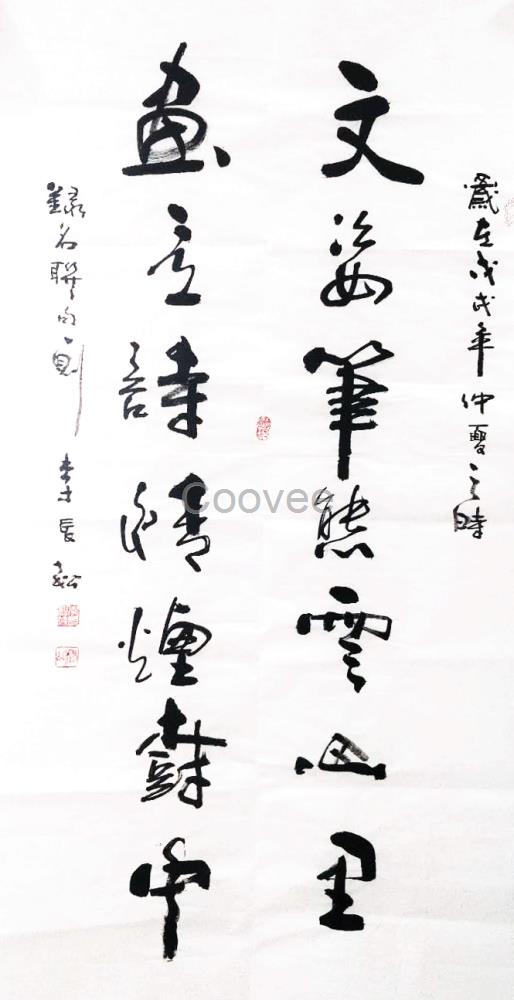 歲在戊戌年仲夏之時
文姿筆態雲山里
畫意詩情煙樹中
錄名聯句一則
李長
Coovee